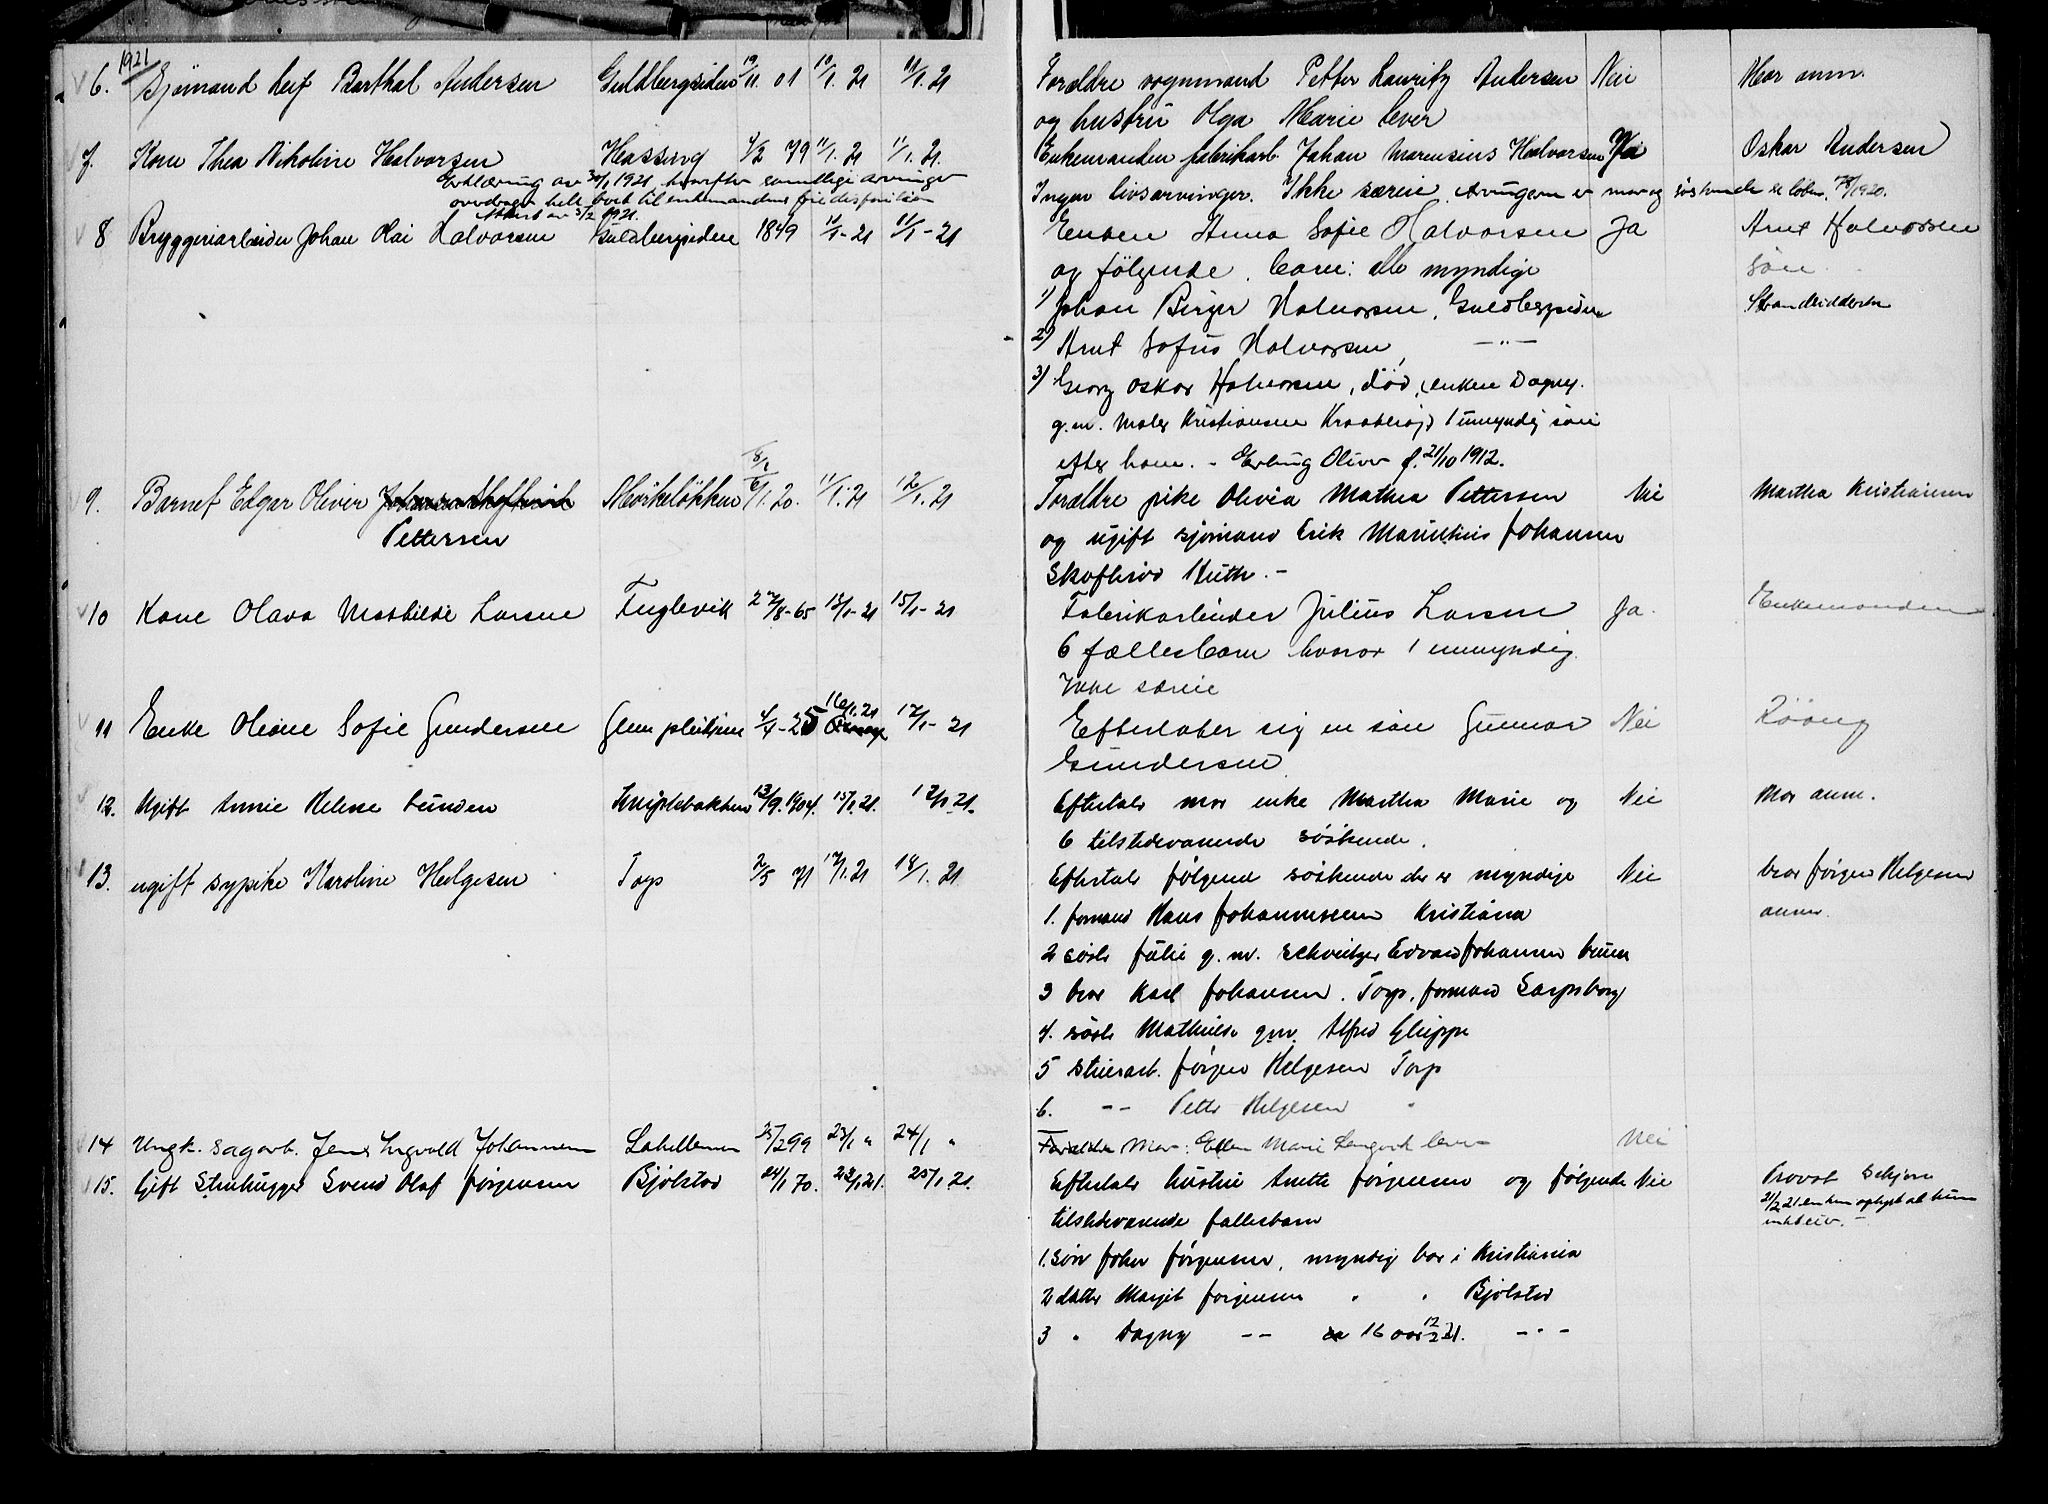 1921
6. Sjömand Leif Barthal Andersen Guldbergsiden 19/11 01 10/1. 21 11/1. 21 Forældre vognmand Petter Lauritz Andersen Nei Mor anm.
og hustru Olga Marie lever
7. Kone Thea Nikoline Halvorsen Hassing 4/2 79 11/1. 21 11/1. 21. Enkemanden fabrikarb. Johan Marensius Halvorsen Ja Oskar Andersen
Erklæring av 30/1 1921 hvorefter samtlige arvinger Ingen livsarvinger. Ikke særeie. Arvingern er mor og søskende
overdrager hele boet til enkemanden
Attest av 3/2 1921.
8 Bryggeriarbeider Johan Olai Halvorsen Guldbergsiden 1849 10/1-21 11/1-21 Enken Anna Sofie Halvorsen Ja Arnt Halvorsen
og følgende barn: alle myndige søn
1) Johan Birger Halvorsen, Guldbergsiden
2) Arnt Sofus Halvorsen, —"—
3) Georg Oskar Halvorsen, død, enken Dagny
g.m. Maler Kristiansen 1 umyndig søn
efter ham. - Erling Oliver f. 21/10 1912.
9. Barnet Edgar Oliver Mørkeløkken 6/1. 20. 11/1. 21 12/1. 21 Forældre pike Olivia Mathea Pettersen Nei Martha Kristiansen
Pettersen og ugift sjømand Erik Marinius Johansen
Skofterød Huth. -
10 Kone Olava Mathilde Larsen Fuglevik 27/8-65 13/1-21 15/1-21 Fabrikarbeider Julius Larsen Ja. Enkemanden
6 fællesbarn hvorav 1 umyndig.
Ikke særeie
11 Enke Oleane Sofie Gundersen Glem pleihjem 4/4-25 16/1.21 17/1-21 Efterlater sig en søn Gunnar Nei
Gundersen
12. Ugift Annie Helene Lunden 13/9. 1904. 15/1. 21. 17/1. 21. Efterlater mor enke Martha Marie og Nei Mor anm.
6 tilstedeværende søskende.
13. ugift sypike Karoline Helgesen Torp 2/5 71 17/1. 21 18/1. 21 Efterlater følgende søskende der er myndige Nei bror Jørgen Helgesen
1. formand Hans Johannessen Kristiania anm.
2 søster Julie g.m. Edvard Johansen
3 bror Karl Johansen. Torp, formand Sarpsborg
4. søster Mathilde gm. Alfred Gluppe
5 Jørgen Helgesen Torp
6. —"— Petter Helgesen "
14 Ungk. sagarb. Jens Ingvald Johannesen Labellemen 25/2 99 23/1 " 24/1 " Mor: Ellen Marie lever Nei
15. Gift Stenhugger Svend Olaf Jørgensen Bjølstad 24/1 70. 23/1 21. 25/1. 21. Efterlater hustru Anette Jørgensen og følgende Nei
tilstedeværende fællesbarn
1. Søn Johan Jørgensen, myndig bor i Kristiania
2 datter Margit Jørgensen " " Bjølstad
3 " Dagny —"— 16 aar 12/2 21. —"—